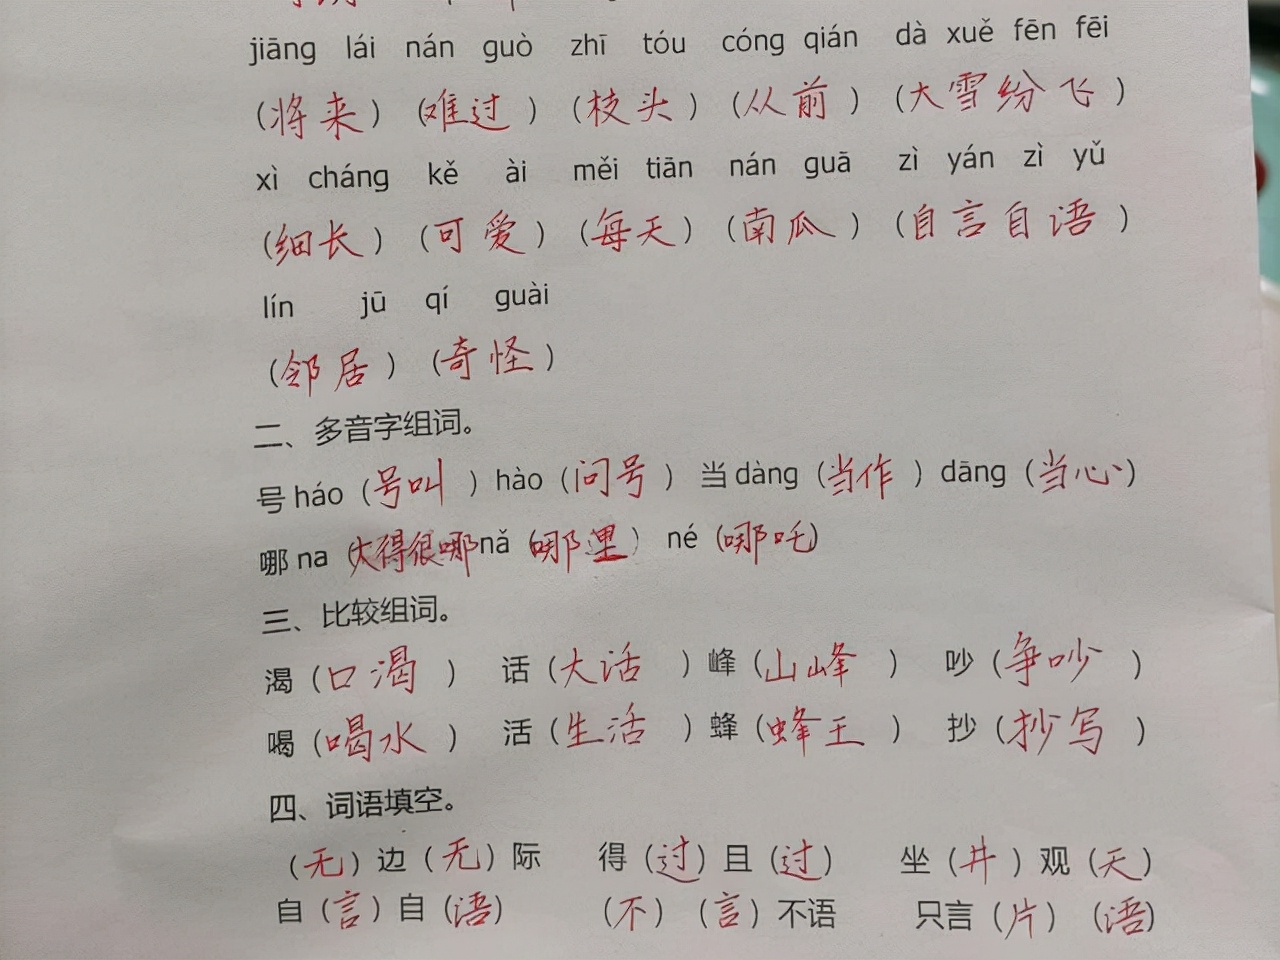 jiāng lái nán guò zhī tóu cóng qián dà xuě fēn fēi
(将来) (难过) (枝头) (从前) (大雪纷飞)
xì cháng kě ài měi tiān nán guā zì yán zì yǔ
(细长) (可爱) (每天) (南瓜) (自言自语)
lín jū qí guài
(邻居) (奇怪)
二、多音字组词。
号 háo (号叫) hào (问号) 当 dàng (当作) dāng (当心)
哪 na (大得很哪 nǎ (哪里) né (哪吒)
三、比较组词。
渴 (口渴) 话 (大话) 峰 (山峰) 吵 (争吵)
喝 (喝水) 活 (生活) 蜂 (蜂王) 抄 (抄写)
四、词语填空。
(无) 边 (无) 际 得 (过) 且 (过) 坐 (井) 观 (天)
自 (言) 自 (语) (不) (言) 不语 只言 (片) (语)